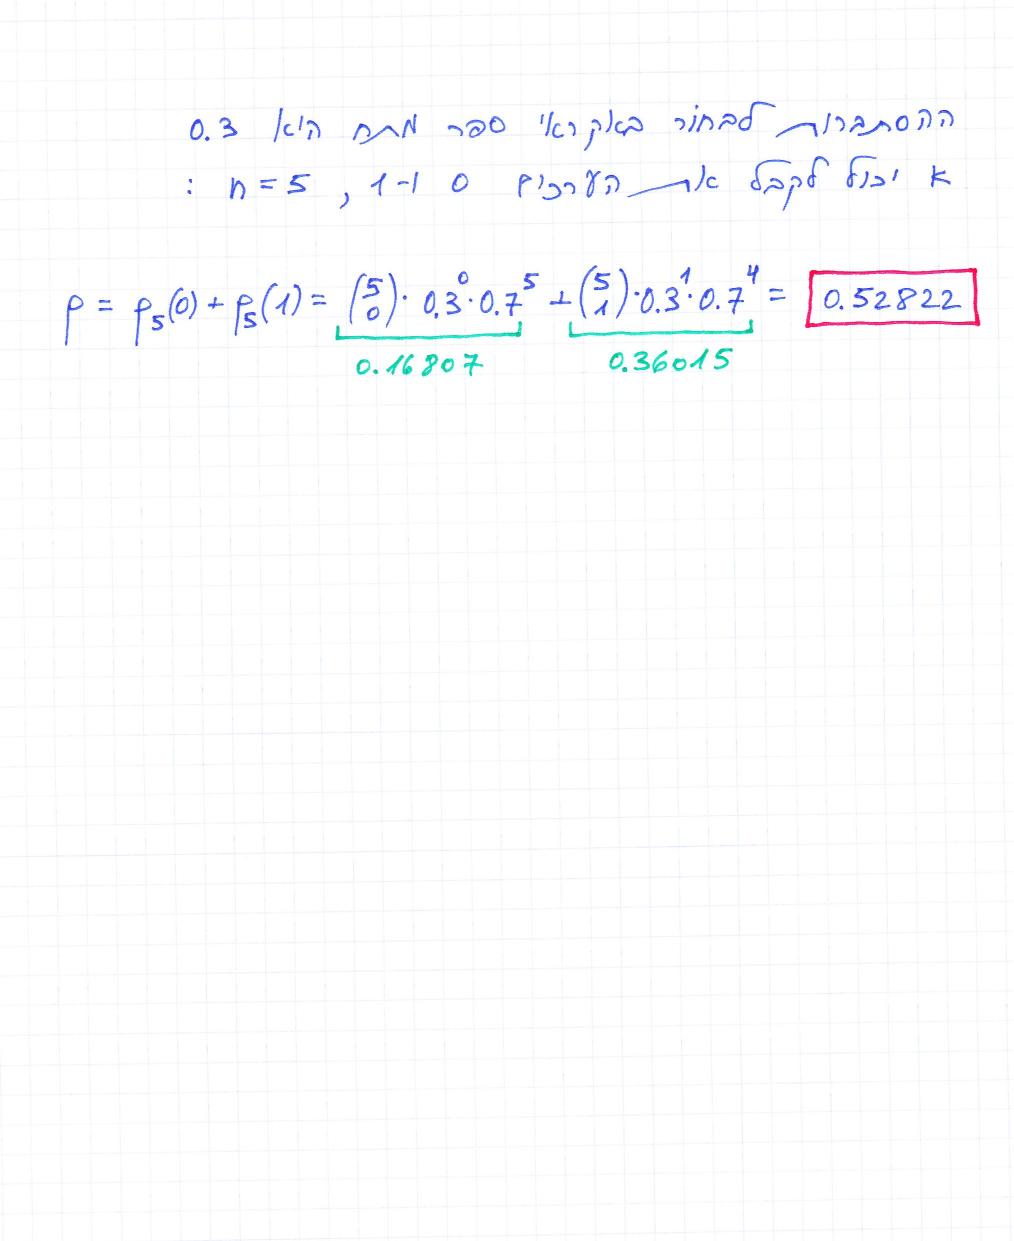 ההסתברות לבחור באקראי ספר מתח היא 0.3
א יכול לקבל את הערכים 0 ו-1 , n = 5 :
p = p₅(0) + p₅(1) = (5 0) · 0.3⁰ · 0.7⁵ + (5 1) · 0.3¹ · 0.7⁴ = 0.52822
0.16807 0.36015